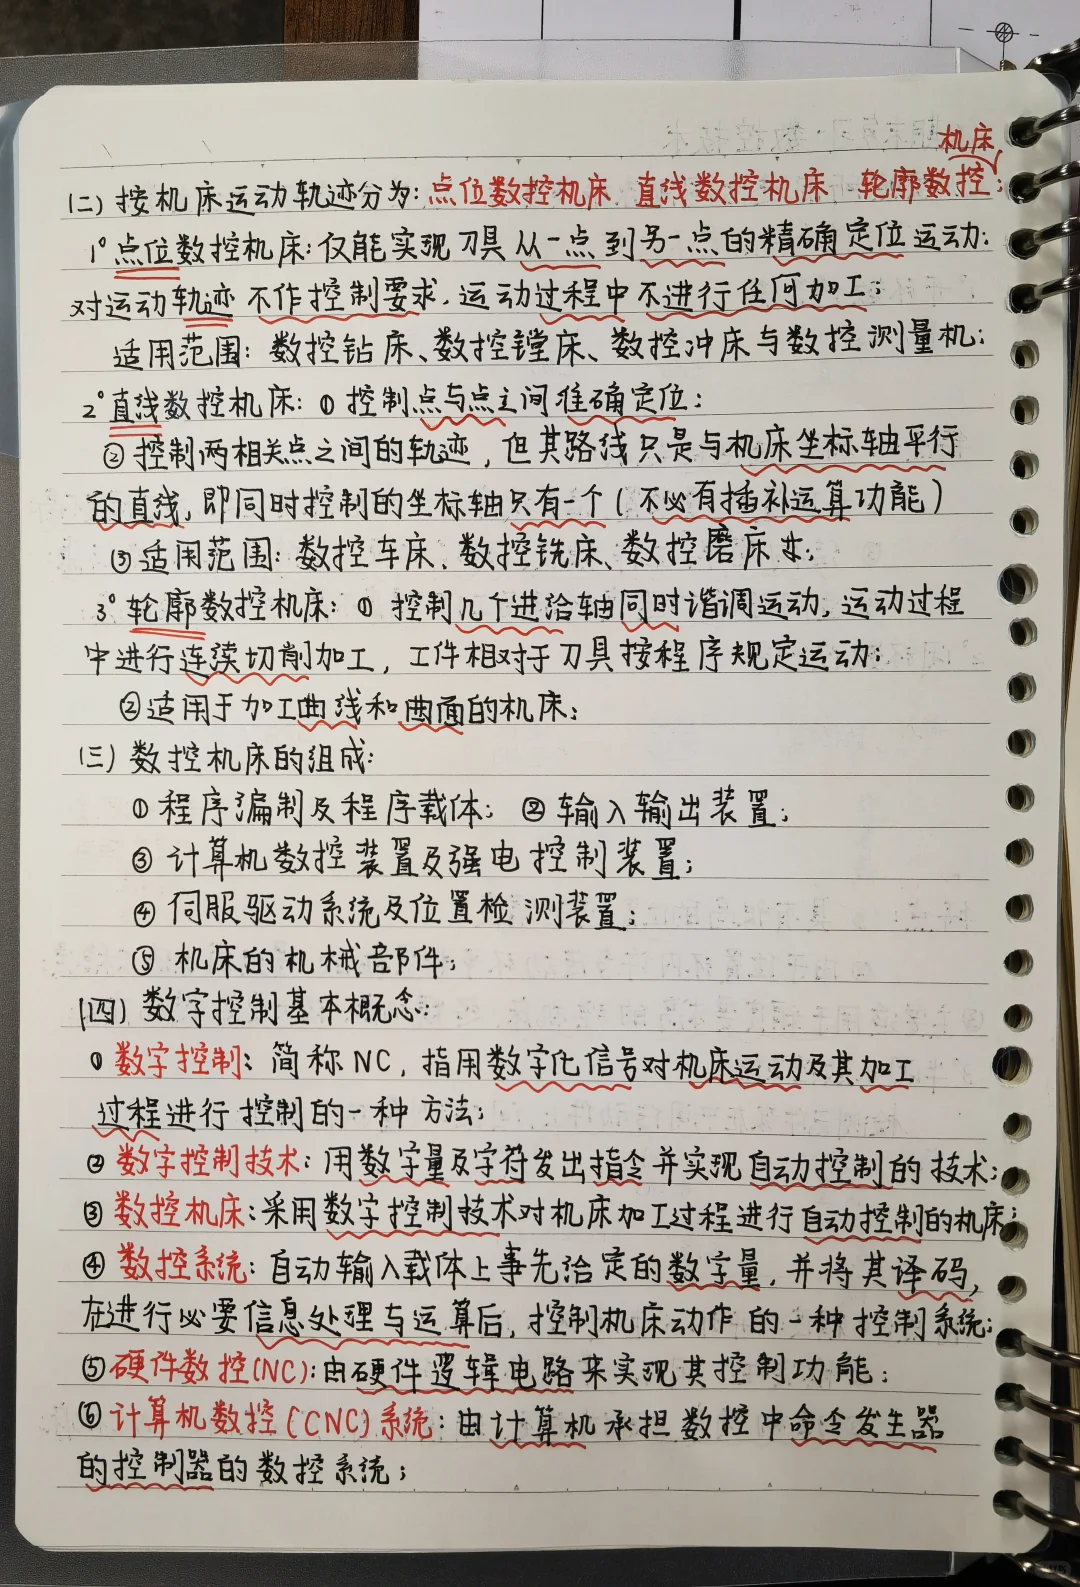 机床
(二) 按机床运动轨迹分为: 点位数控机床 直线数控机床 轮廓数控;
1° 点位数控机床: 仅能实现刀具从一点到另一点的精确定位运动;
对运动轨迹不作控制要求. 运动过程中不进行任何加工;
适用范围: 数控钻床、数控镗床、数控冲床与数控测量机;
2° 直线数控机床: ① 控制点与点之间准确定位;
② 控制两相关点之间的轨迹, 但其路线只是与机床坐标轴平行
的直线, 即同时控制的坐标轴只有一个(不必有插补运算功能)
③ 适用范围: 数控车床、数控铣床、数控磨床等;
3° 轮廓数控机床: ① 控制几个进给轴同时谐调运动, 运动过程
中进行连续切削加工, 工件相对于刀具按程序规定运动;
② 适用于加工曲线和曲面的机床;
(三) 数控机床的组成:
① 程序编制及程序载体; ② 输入输出装置;
③ 计算机数控装置及强电控制装置;
④ 伺服驱动系统及位置检测装置;
⑤ 机床的机械部件;
(四) 数字控制基本概念:
① 数字控制: 简称NC, 指用数字化信号对机床运动及其加工
过程进行控制的一种方法;
② 数字控制技术: 用数字量及字符发出指令并实现自动控制的技术;
③ 数控机床: 采用数字控制技术对机床加工过程进行自动控制的机床;
④ 数控系统: 自动输入载体上事先给定的数字量, 并将其译码,
在进行必要信息处理与运算后, 控制机床动作的一种控制系统;
⑤ 硬件数控(NC): 由硬件逻辑电路来实现其控制功能;
⑥ 计算机数控(CNC)系统: 由计算机承担数控中命令发生器
的控制器的数控系统;